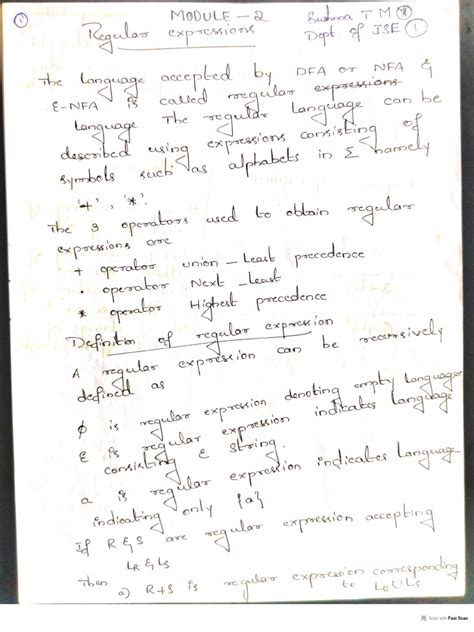 MODULE - 2
Sushma T M
Regular expressions
Dept. of ISE ①
The language accepted by DFA or NFA &
Ɛ-NFA is called regular expressions
language The regular language can be
described using expressions consisting of
symbols such as alphabets in Σ namely
'+', '*'.
The 3 operators used to obtain regular
expressions are
+ operator union - Least precedence
. operator Next - Least
* operator Highest precedence
Definition of regular expression
A regular expression can be recursively
defined as
ϕ is regular expression denoting empty language
Ɛ is regular expression indicates language
consisting Ɛ string.
a is regular expression indicates language
indicating only {a}
If R & S are regular expression accepting
LR & LS
Then
a) R+S is regular expression corresponding
to LR U LS
Scan with Fast Scan